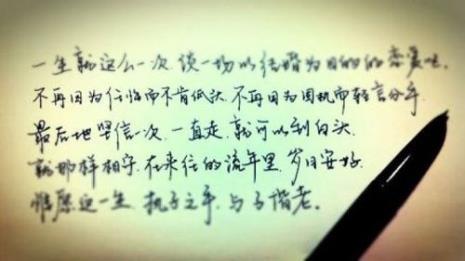 一生就这么一次.谈一场以结婚为目的的恋爱吧.
不再因为任性而不肯低头.不再因为固执而轻言分手.
最后地坚信一次.一直走.就可以到白头.
就那样相守.在来往的流年里.岁月安好.
惟愿这一生.执子之手.与子偕老.